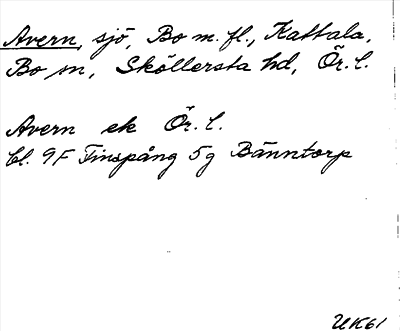 Avern, sjö, Bo m. fl., Kattala,
Bo sn, Sköllersta hd, Ör. l.
Avern ek Ör. l.
bl. 9F Finspång 5g Bänntorp
UK61